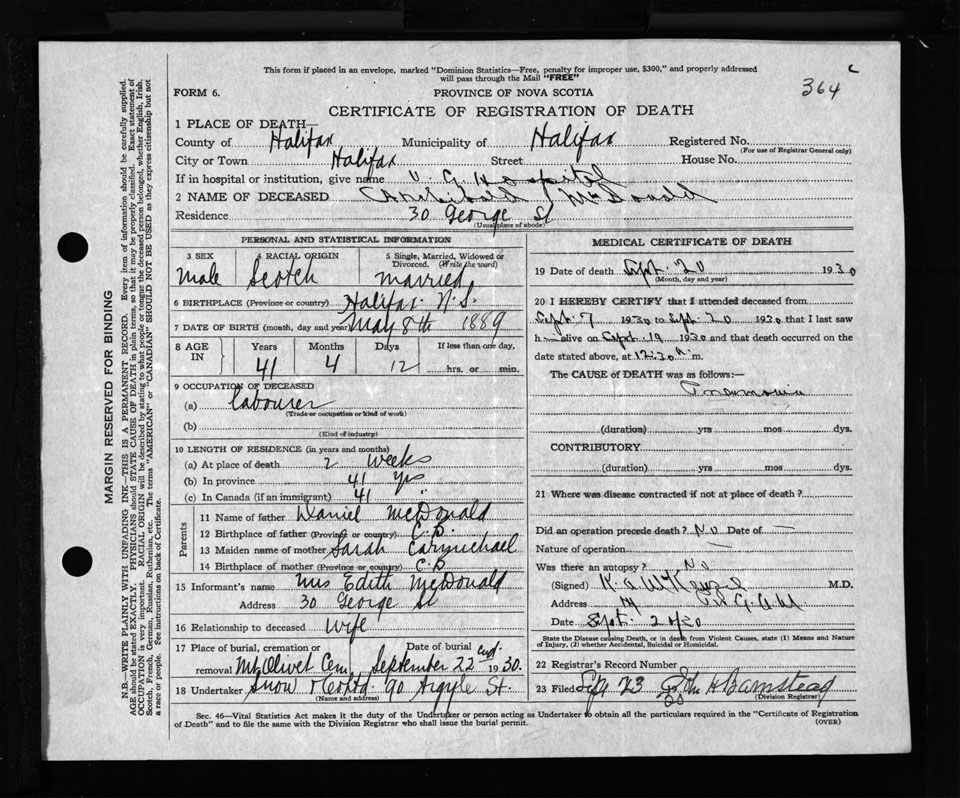 This form if placed in an envelope, marked "Dominion Statistics—Free, penalty for improper use, $300," and properly addressed
will pass through the Mail "FREE"
364
FORM 6.
PROVINCE OF NOVA SCOTIA
CERTIFICATE OF REGISTRATION OF DEATH
1 PLACE OF DEATH—
County of Halifax Municipality of Halifax Registered No.
(For use of Registrar General only)
City or Town Halifax Street House No.
If in hospital or institution, give name V. G. Hospital
2 NAME OF DECEASED Archibald McDonald
Residence 30 George St
(Usual place of abode)
PERSONAL AND STATISTICAL INFORMATION
3 SEX 4 RACIAL ORIGIN 5 Single, Married, Widowed or Divorced. (Write the word)
Male Scotch married
6 BIRTHPLACE (Province or country) Halifax N.S.
7 DATE OF BIRTH (month, day and year) May 8th 1889
8 AGE IN Years Months Days If less than one day,
41 4 12 hrs. or min.
9 OCCUPATION OF DECEASED
(a) labourer
(Trade or occupation or kind of work)
(b)
(Kind of industry)
10 LENGTH OF RESIDENCE (in years and months)
(a) At place of death 2 weeks
(b) In province 41 yrs
(c) In Canada (if an immigrant) 41 "
Parents
11 Name of father Daniel McDonald
12 Birthplace of father (Province or country) C.B.
13 Maiden name of mother Sarah Carmichael
14 Birthplace of mother (Province or country) C.B
15 Informant's name Mrs Edith McDonald
Address 30 George St
16 Relationship to deceased Wife
17 Place of burial, cremation or removal Mt Olivet Cem. Date of burial September 22nd 1930.
18 Undertaker Snow & Co Ltd. 90 Argyle St.
(Name and address)
MEDICAL CERTIFICATE OF DEATH
19 Date of death Sept. 20 1930
(Month, day and year)
20 I HEREBY CERTIFY that I attended deceased from
Sept. 7 1930 to Sept. 20 1930 that I last saw
h alive on Sept. 19 1930 and that death occurred on the
date stated above, at 12.30 a m.
The CAUSE of DEATH was as follows:—
Pneumonia
(duration) yrs mos dys.
CONTRIBUTORY
(duration) yrs mos dys.
21 Where was disease contracted if not at place of death?
Did an operation precede death? No Date of —
Nature of operation —
Was there an autopsy? No
(Signed) M.D.
Address
Date Sept. 20/30
State the Disease causing Death, or in death from Violent Causes, state (1) Means and Nature
of Injury, (2) whether Accidental, Suicidal or Homicidal.
22 Registrar's Record Number
23 Filed Sept 23 30 John H Barnstead
(Division Registrar)
Sec. 46—Vital Statistics Act makes it the duty of the Undertaker or person acting as Undertaker to obtain all the particulars required in the "Certificate of Registration
of Death" and to file the same with the Division Registrar who shall issue the burial permit.
(OVER)
MARGIN RESERVED FOR BINDING
N.B.—WRITE PLAINLY WITH UNFADING INK—THIS IS A PERMANENT RECORD. Every item of information should be carefully supplied.
AGE should be stated EXACTLY. PHYSICIANS should STATE CAUSE OF DEATH in plain terms, so that it may be properly classified. Exact statement of
OCCUPATION is very important. RACIAL ORIGIN will be described by stating to what people or tongue the deceased person belonged, whether English, Irish,
Scotch, French, German, Russian, Ruthenian, etc. The terms "AMERICAN" or "CANADIAN" SHOULD NOT BE USED as they express citizenship but not
a race or people. See instructions on back of Certificate.